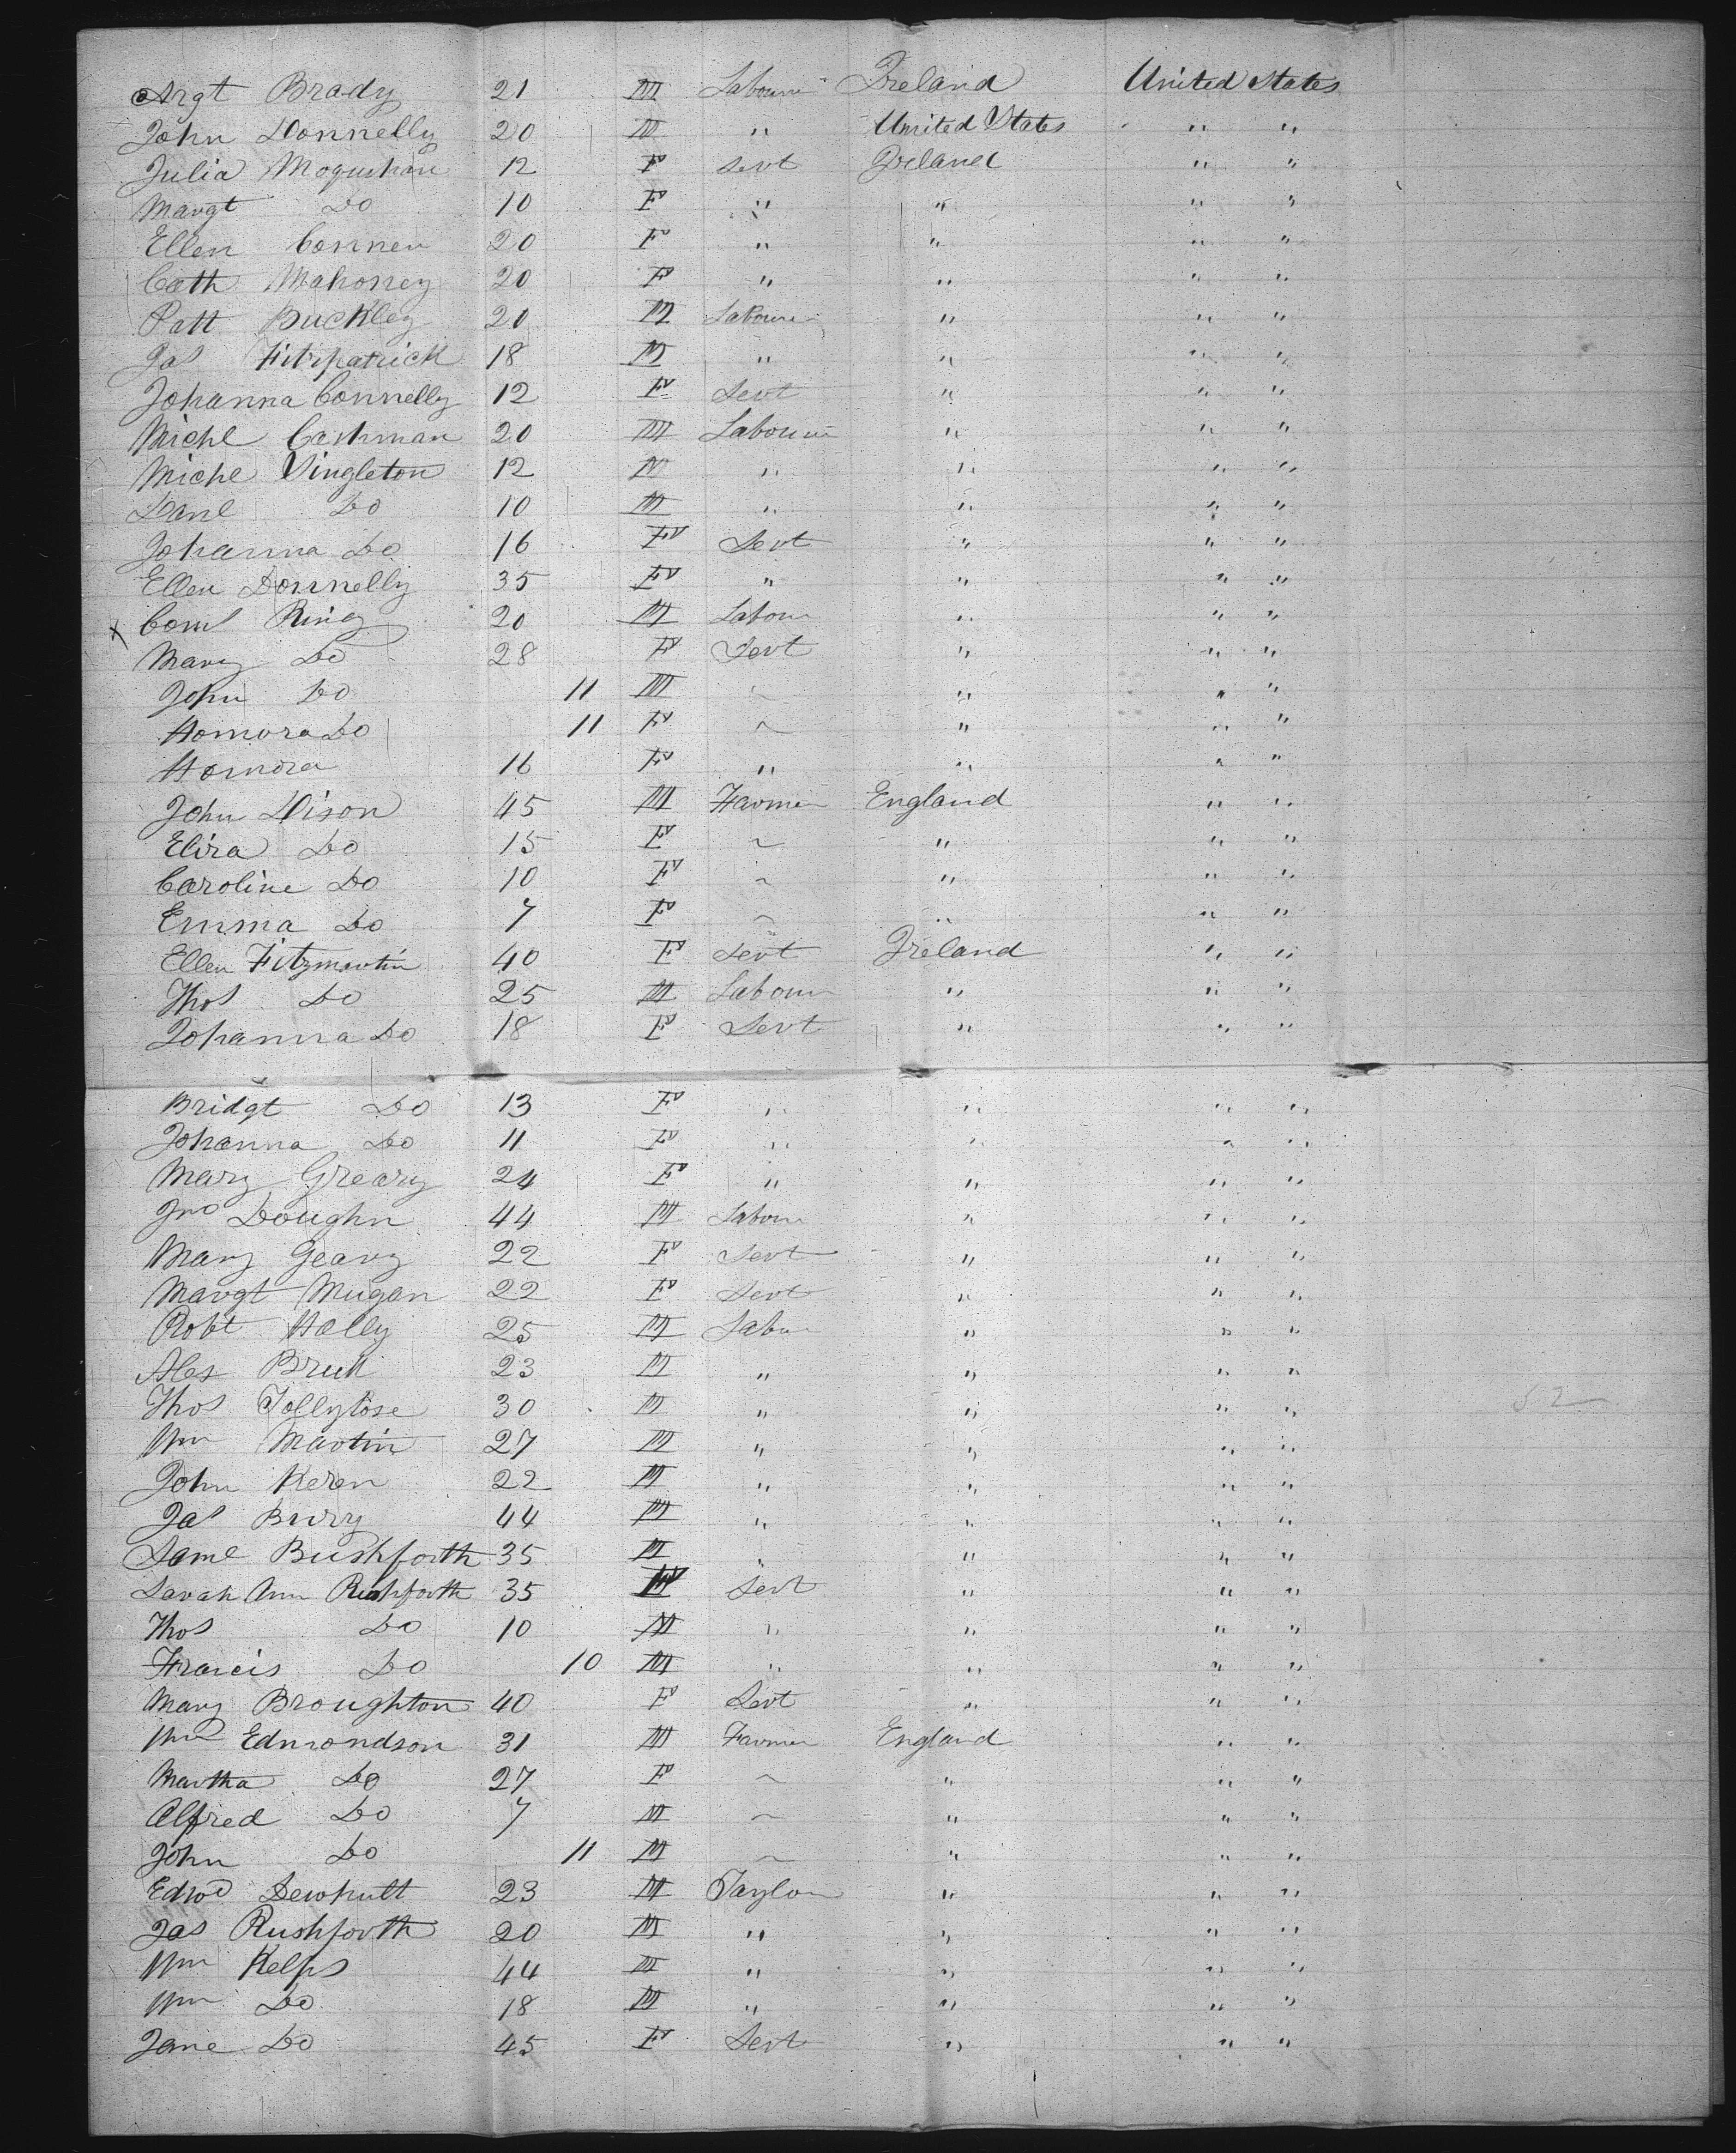 Argt Brady 21 M Labourer Ireland United States
John Donnelly 20 M " United States " "
Julia Moqushan 12 F Servt Ireland " "
Margt Do 10 F " " " "
Ellen Conner 20 F " " " "
Cath Mahoney 20 F " " " "
Patt Buckley 20 M Labourer " " "
Jas Fitzpatrick 18 M " " " "
Johanna Connelly 12 F Servt " " "
Michl Cashman 20 M Labourer " " "
Michl Singleton 12 M " " " "
Danl Do 10 M " " " "
Johanna Do 16 F Servt " " "
Ellen Donnelly 35 F " " " "
x Corns Ring 20 M Labour " " "
Mary Do 28 F Servt " " "
John Do 11 M ~ " " "
Honora Do 11 F ~ " " "
Honora 16 F " " " "
John Dixon 45 M Farmer England " "
Eliza Do 15 F ~ " " "
Caroline Do 10 F ~ " " "
Emma Do 7 F ~ " " "
Ellen Fitzmartin 40 F Servt Ireland " "
Thos Do 25 M Labour " " "
Johanna Do 18 F Servt " " "
Bridgt Do 13 F " " " "
Johanna Do 11 F " " " "
Mary Greary 24 F " " " "
Jno Doughn 44 M Labour " " "
Mary Geary 22 F Servt " " "
Margt Mugan 22 F Servt " " "
Robt Hally 25 M Labour " " "
Alex Bruk 23 M " " " "
Thos 30 M " " " "
Wm Martin 27 M " " " "
John Keren 22 M " " " "
Jas Burry 44 M " " " "
Saml Bushforth 35 M " " " "
Sarah Ann Rushforth 35 F Servt " " "
Thos Do 10 M " " " "
Francis Do 10 M " " " "
Mary Broughton 40 F Servt " " "
Wm Edmondson 31 M Farmer England " "
Martha Do 27 F ~ " " "
Alfred Do 7 M ~ " " "
John Do 11 M ~ " " "
Edwd Dewhutt 23 M Taylor " " "
Jas Rushforth 20 M " " " "
Wm Kelps 44 M " " " "
Wm Do 18 M " " " "
Jane Do 45 F Servt " " "
52